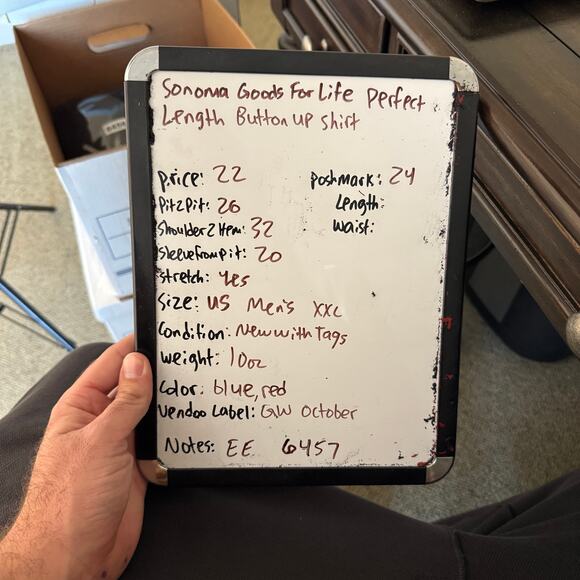 Sonoma Goods For Life Perfect
Length Button up shirt
price: 22
poshmark: 24
Pit2Pit: 26
Length:
Shoulder2Hem: 32
waist:
Sleevefrompit: 20
stretch: yes
Size: US Men's XXL
Condition: New with Tags
weight: 10oz
Color: blue, red
Vendoo Label: GW October
Notes: EE 6457